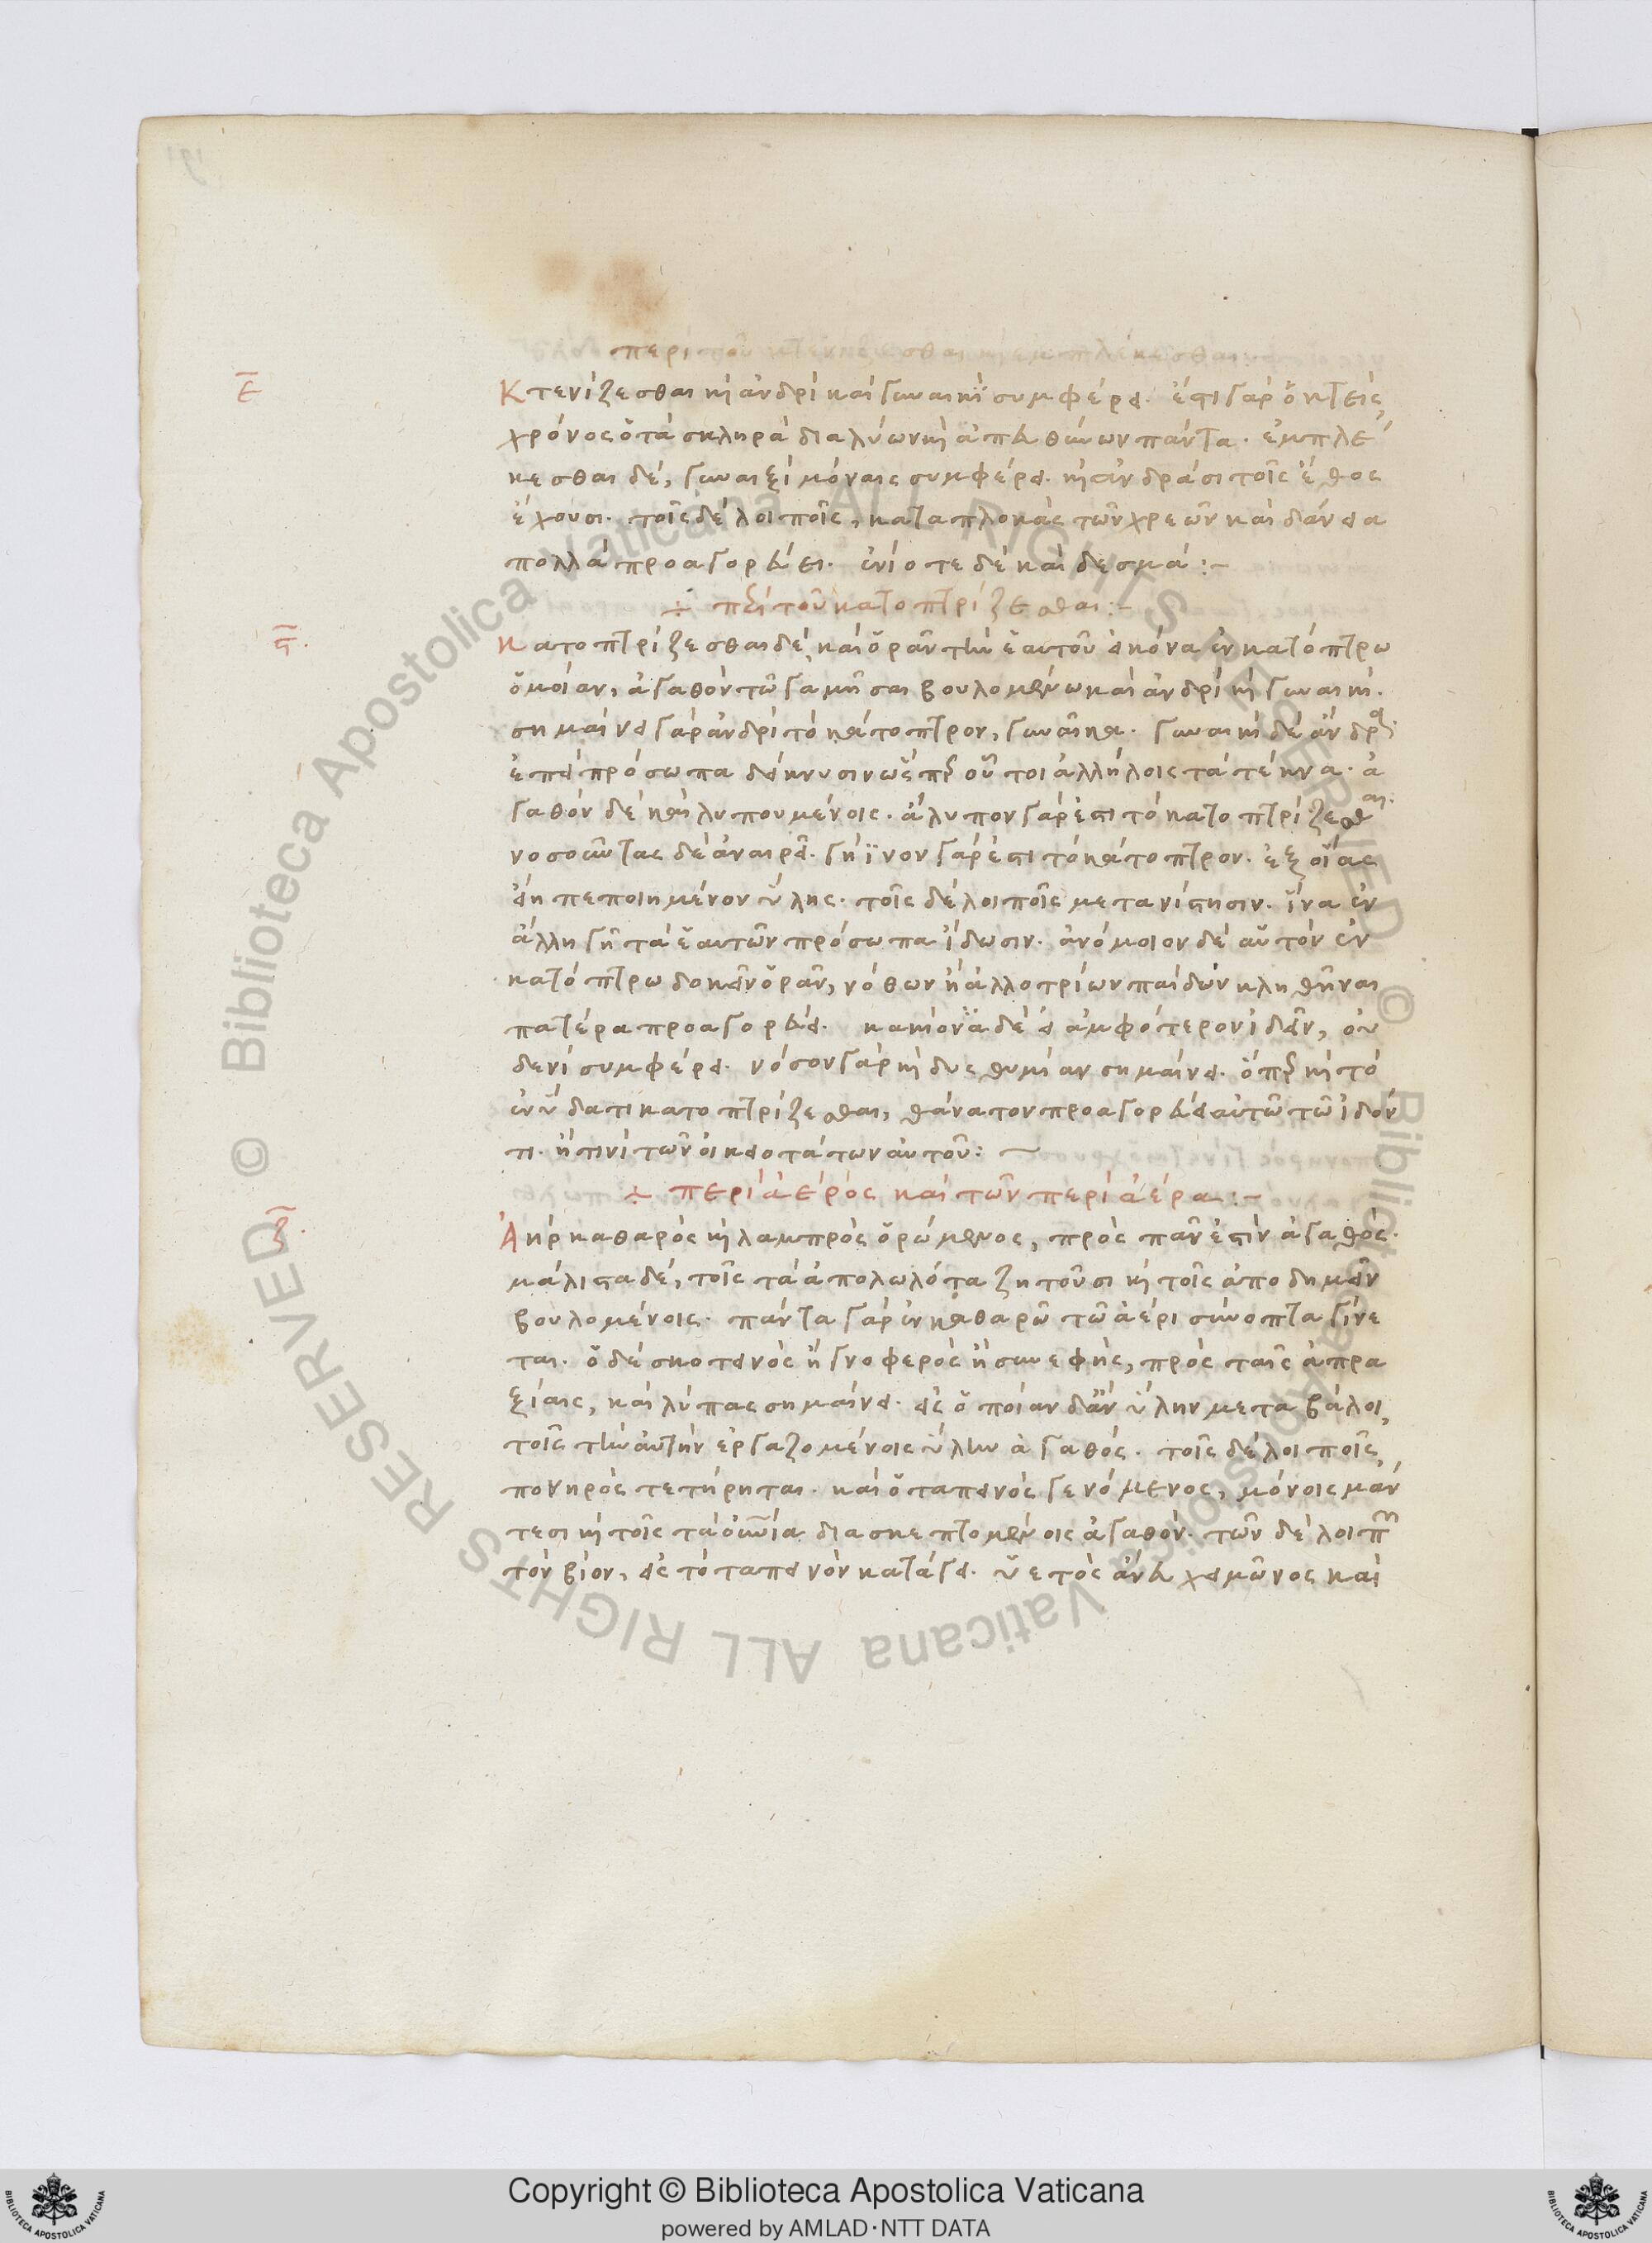 περὶ τοῦ κτενίζεσθαι καὶ ἐμπλέκεσθαι:
ε Κτενίζεσθαι καὶ ἀνδρὶ καὶ γυναικὶ συμφέρει. ἔστι γὰρ ὁ κτεὶς
χρόνος ὁ τὰ σκληρὰ διαλύων καὶ ἀπευθύνων πάντα. ἐμπλέ
κεσθαι δέ, γυναιξὶ μόναις συμφέρει. καὶ ἀνδράσι τοῖς ἔθος
ἔχουσι. τοῖς δὲ λοιποῖς, καταπλοκὰς τῶν χρεῶν καὶ δάνεια
πολλὰ προαγορεύει. ἐνίοτε δὲ καὶ δεσμά:-
+ περὶ τοῦ κατοπτρίζεσθαι:-
ϛ. Κατοπτρίζεσθαι δὲ καὶ ὁρᾶν τὴν ἑαυτοῦ εἰκόνα ἐν κατόπτρω
ὁμοίαν, ἀγαθὸν τῶ γαμῆσαι βουλομένω καὶ ἀνδρὶ καὶ γυναικί.
σημαίνει γὰρ ἀνδρὶ τὸ κάτοπτρον, γυναῖκα. γυναικὶ δὲ ἄνδρα.
ἐπεὶ πρόσωπα δείκνυσιν ὥσπερ οὗτοι ἀλλήλοις τὰ τέκνα. ἀ
γαθὸν δὲ καὶ λυπουμένοις. ἄλυπον γάρ ἐστι τὸ κατοπτρίζεσθαι.
νοσοῦντας δὲ ἀναιρεῖ. γήϊνον γάρ ἐστι τὸ κάτοπτρον. ἐξ οἵας
εἴη πεποιημένον ὕλης. τοῖς δὲ λοιποῖς μετανίστησιν. ἵνα ἐν
ἄλλη γῆ τὰ ἑαυτῶν πρόσωπα ἴδωσιν. ἀνόμοιον δὲ αὑτὸν ἐν
κατόπτρω δοκεῖν ὁρᾶν, νόθων ἢ ἀλλοτρίων παίδων κληθῆναι
πατέρα προαγορεύει. κακίονα δὲ εἰ ἀμφότερον ἰδεῖν, οὐ
δενὶ συμφέρει. νόσον γὰρ καὶ δυσθυμίαν σημαίνει. ὅπερ καὶ τὸ
ἐν ὕδατι κατοπτρίζεσθαι, θάνατον προαγορεύει αὐτῶ τῶ ἰδόν
τι. ἤ τινι τῶν οἰκειοτάτων αὐτοῦ:-
+ περὶ ἀέρος καὶ τῶν περὶ ἀέρα:-
ζ. Ἀὴρ καθαρὸς καὶ λαμπρὸς ὁρώμενος, πρὸς πᾶν ἐστὶν ἀγαθός.
μάλιστα δέ, τοῖς τὰ ἀπολωλότα ζητοῦσι καὶ τοῖς ἀποδημεῖν
βουλομένοις. πάντα γὰρ ἐν καθαρῶ τῶ ἀέρι σύνοπτα γίνε
ται. ὁ δὲ σκοτεινὸς ἢ γνοφερὸς ἢ συνεφής, πρὸς ταῖς ἀπρα
ξίαις, καὶ λύπας σημαίνει. εἰς ὁποίαν δ' ἂν ὕλην μεταβάλοι,
τοῖς τὴν αὐτὴν ἐργαζομένοις ὕλην ἀγαθός. τοῖς δὲ λοιποῖς
πονηρὸς τετήρηται. καὶ ὁ ταπεινὸς γενόμενος, μόνοις μάν
τεσι καὶ τοῖς τὰ οὐράνια διασκεπτομένοις ἀγαθόν. τῶν δὲ λοιπῶν
τὸν βίον, εἰς τὸ ταπεινὸν κατάγει. ὑετὸς ἄνευ χειμῶνος καὶ
Copyright © Biblioteca Apostolica Vaticana
powered by AMLAD·NTT DATA